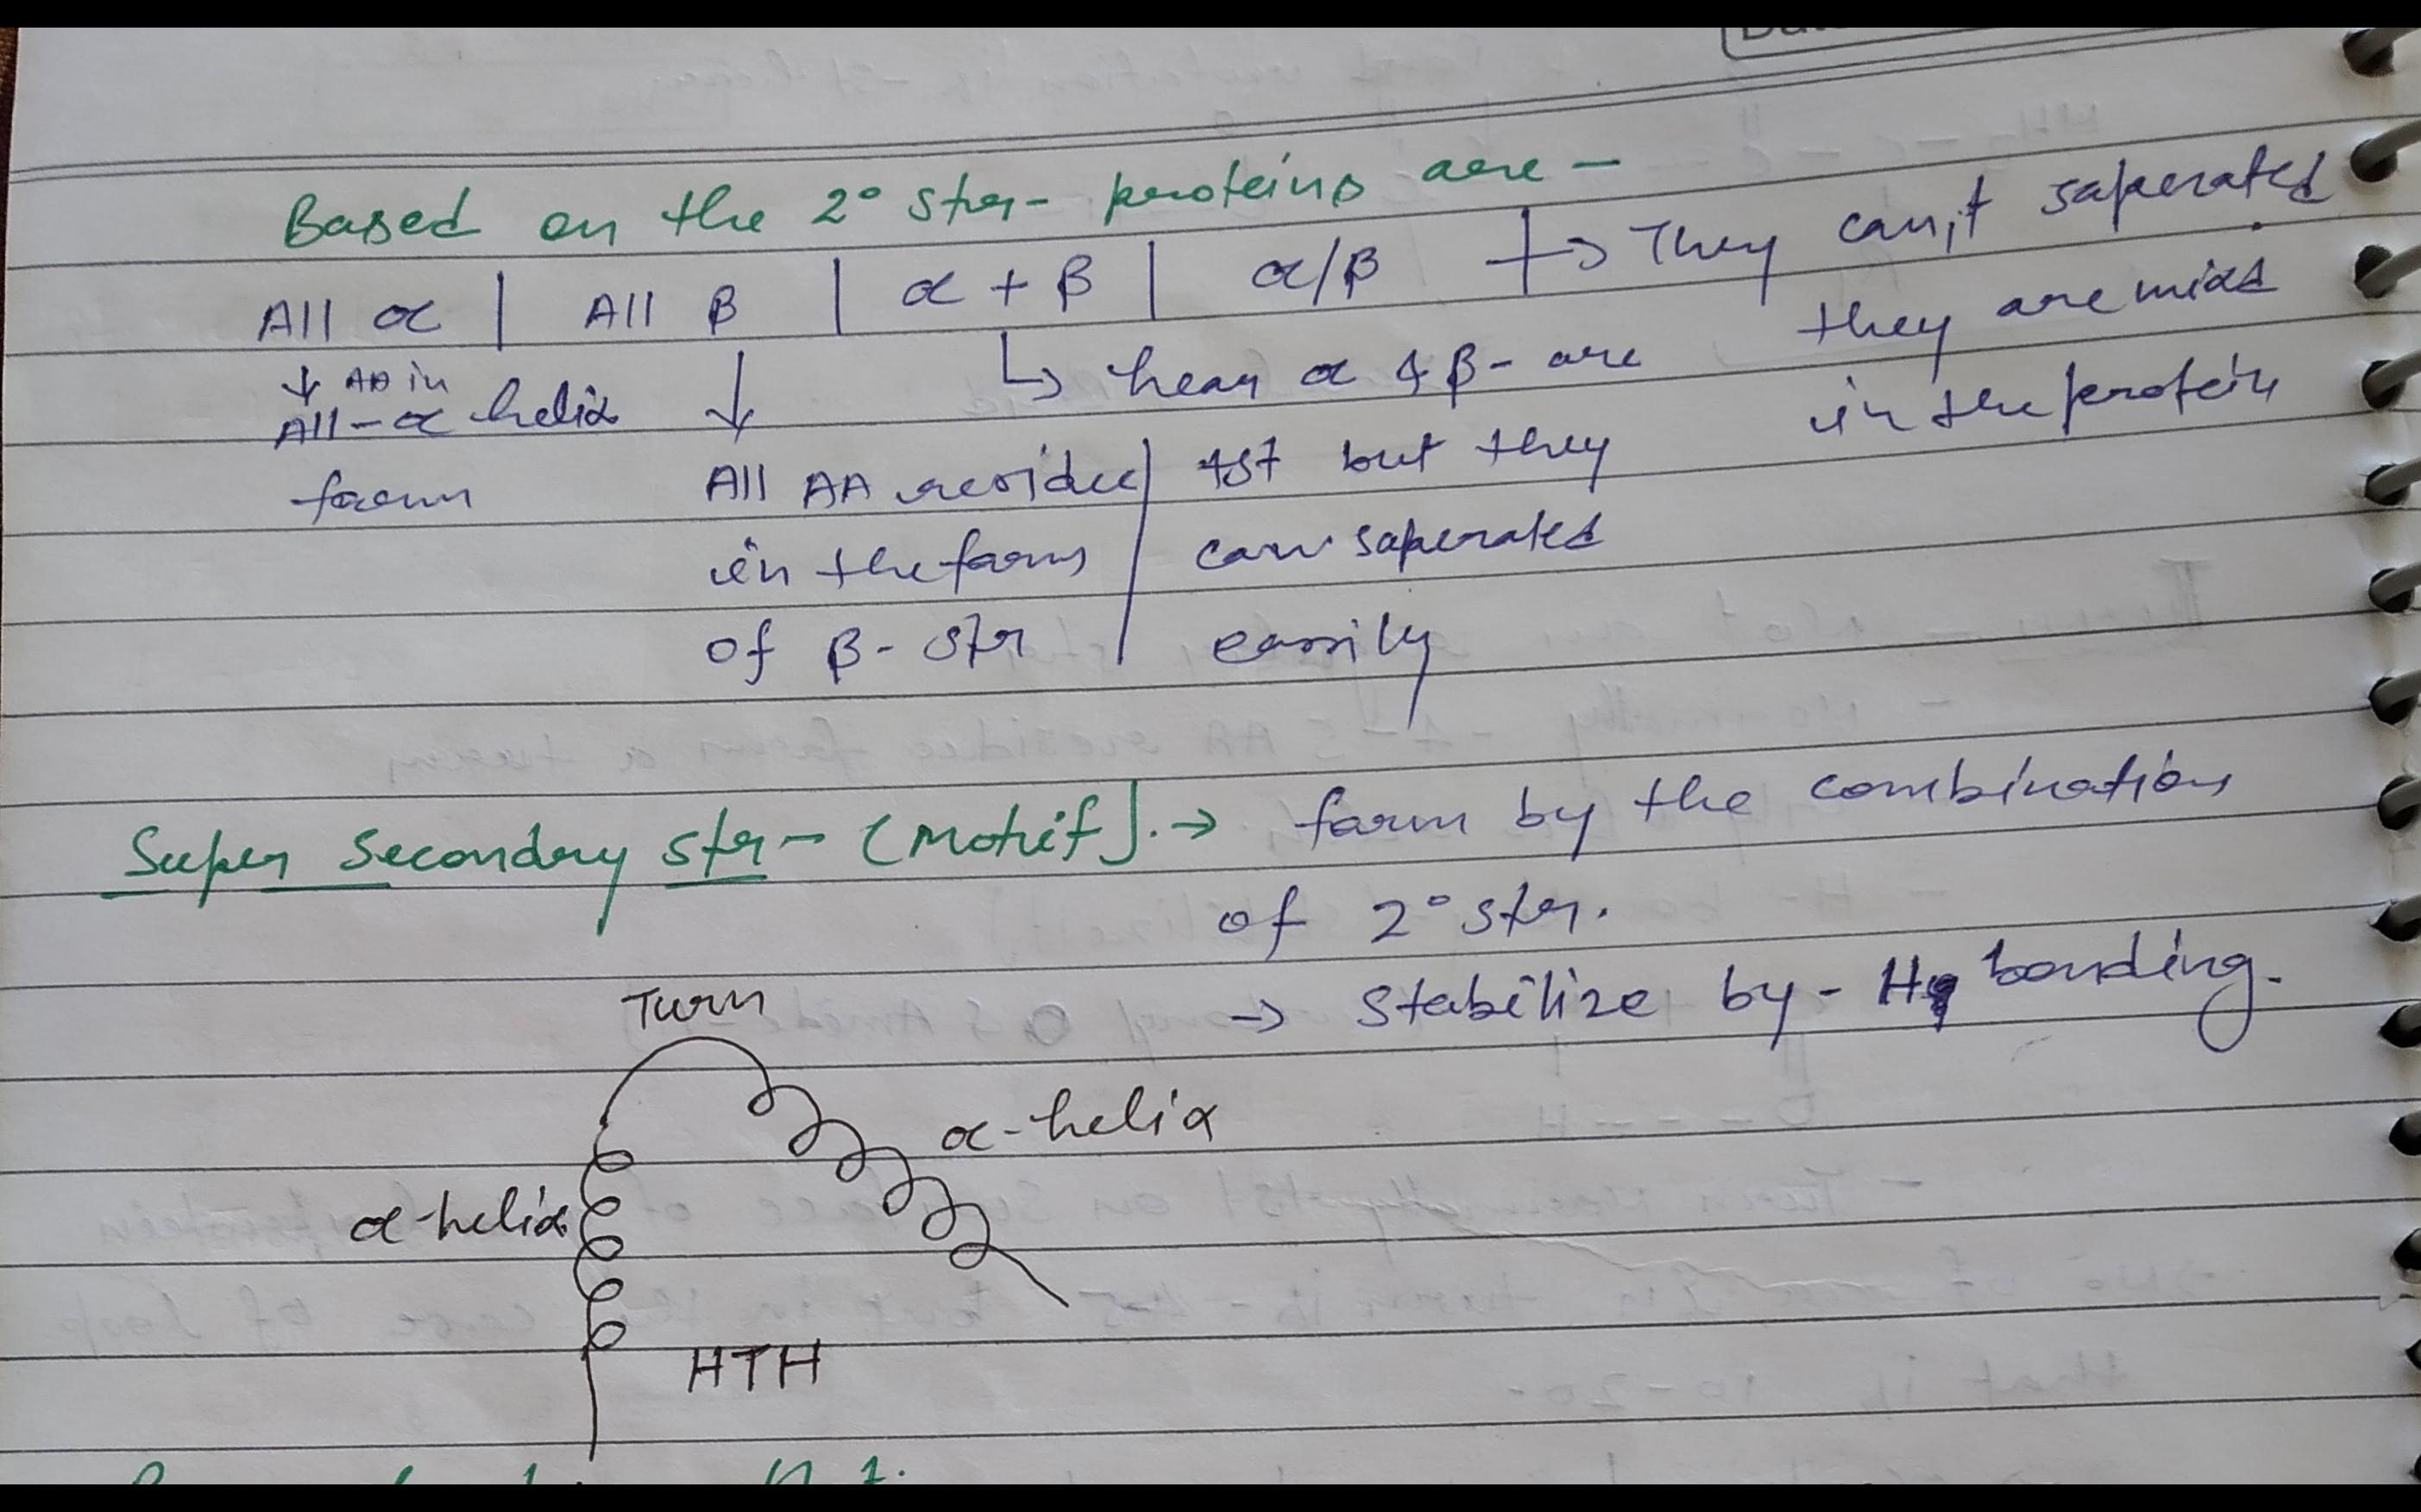 Based on the 2° str- proteins are -
All α | All β | α + β | α/β → They can't saperated
they are mixd
in the protein
↓ AA in
All-α helix
form
↓
All AA residue
in the form
of β- str
↳ hear α & β- are
1st but they
can saperated
eassily
Super Secondry str- (Motif]. → form by the combination
of 2° str.
→ Stabilize by - H bonding.
Turn
α-helix
α-helix
HTH